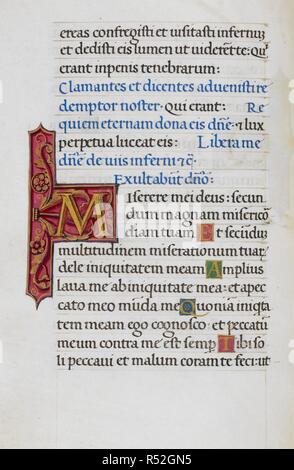 ereas confregisti et uisitasti infernuz
et dedisti eis lumen ut uiderent te: qui
erant in penis tenebrarum:
Clamantes et dicentes aduenisti re
demptor noster. qui erant: Re
quiem eternam dona eis dñe: & lux
perpetua luceat eis: Libera me
dñe de uiis inferni &c̃.
Exultabũt dño:
Miserere mei deus: secun
dum magnam misericõ
diam tuam: Et secũdũ
multitudinem miserationum tuaʀ
dele iniquitatem meam: Amplius
laua me ab iniquitate mea: et a pec
cato meo mũda me: Quoniã iniq̃ta
tem meam ego cognosco: et peccatũ
meum contra me est semp̃: Tibi so
li peccaui et malum coram te feci: ut
alamy
Image ID: R52GN5
www.alamy.com